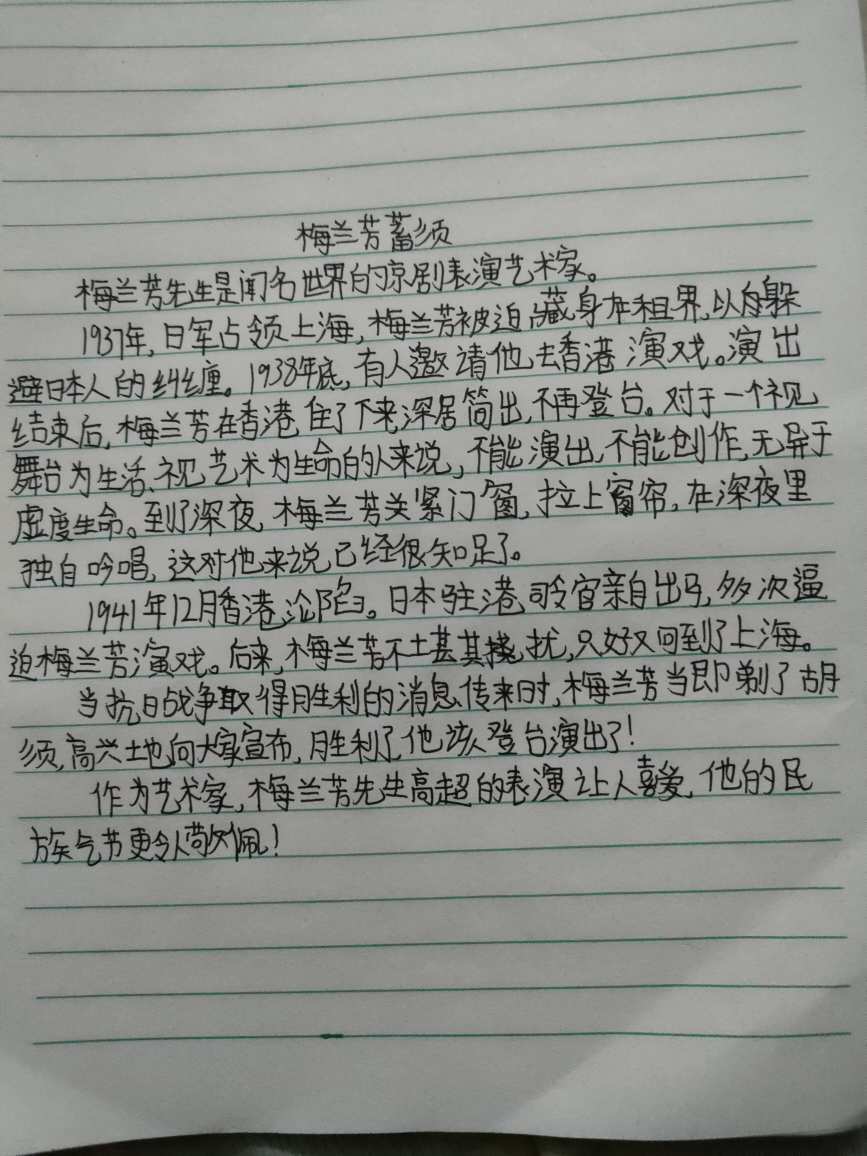 梅兰芳蓄须
梅兰芳先生是闻名世界的京剧表演艺术家。
1937年,日军占领上海,梅兰芳被迫藏身在租界,以躲
避日本人的纠缠。1938年底,有人邀请他去香港演戏。演出
结束后,梅兰芳在香港住了下来,深居简出,不再登台。对于一个视
舞台为生活、视艺术为生命的人来说,不能演出,不能创作,无异于
虚度生命。到了深夜,梅兰芳关紧门窗,拉上窗帘,在深夜里
独自吟唱,这对他来说已经很知足了。
1941年12月香港沦陷。日本驻港司令官亲自出马,多次逼
迫梅兰芳演戏。后来,梅兰芳不堪其扰,只好又回到了上海。
当抗日战争取得胜利的消息传来时,梅兰芳当即剃了胡
须,高兴地向大家宣布,胜利了,他该登台演出了!
作为艺术家,梅兰芳先生高超的表演让人喜爱,他的民
族气节更令人敬佩!